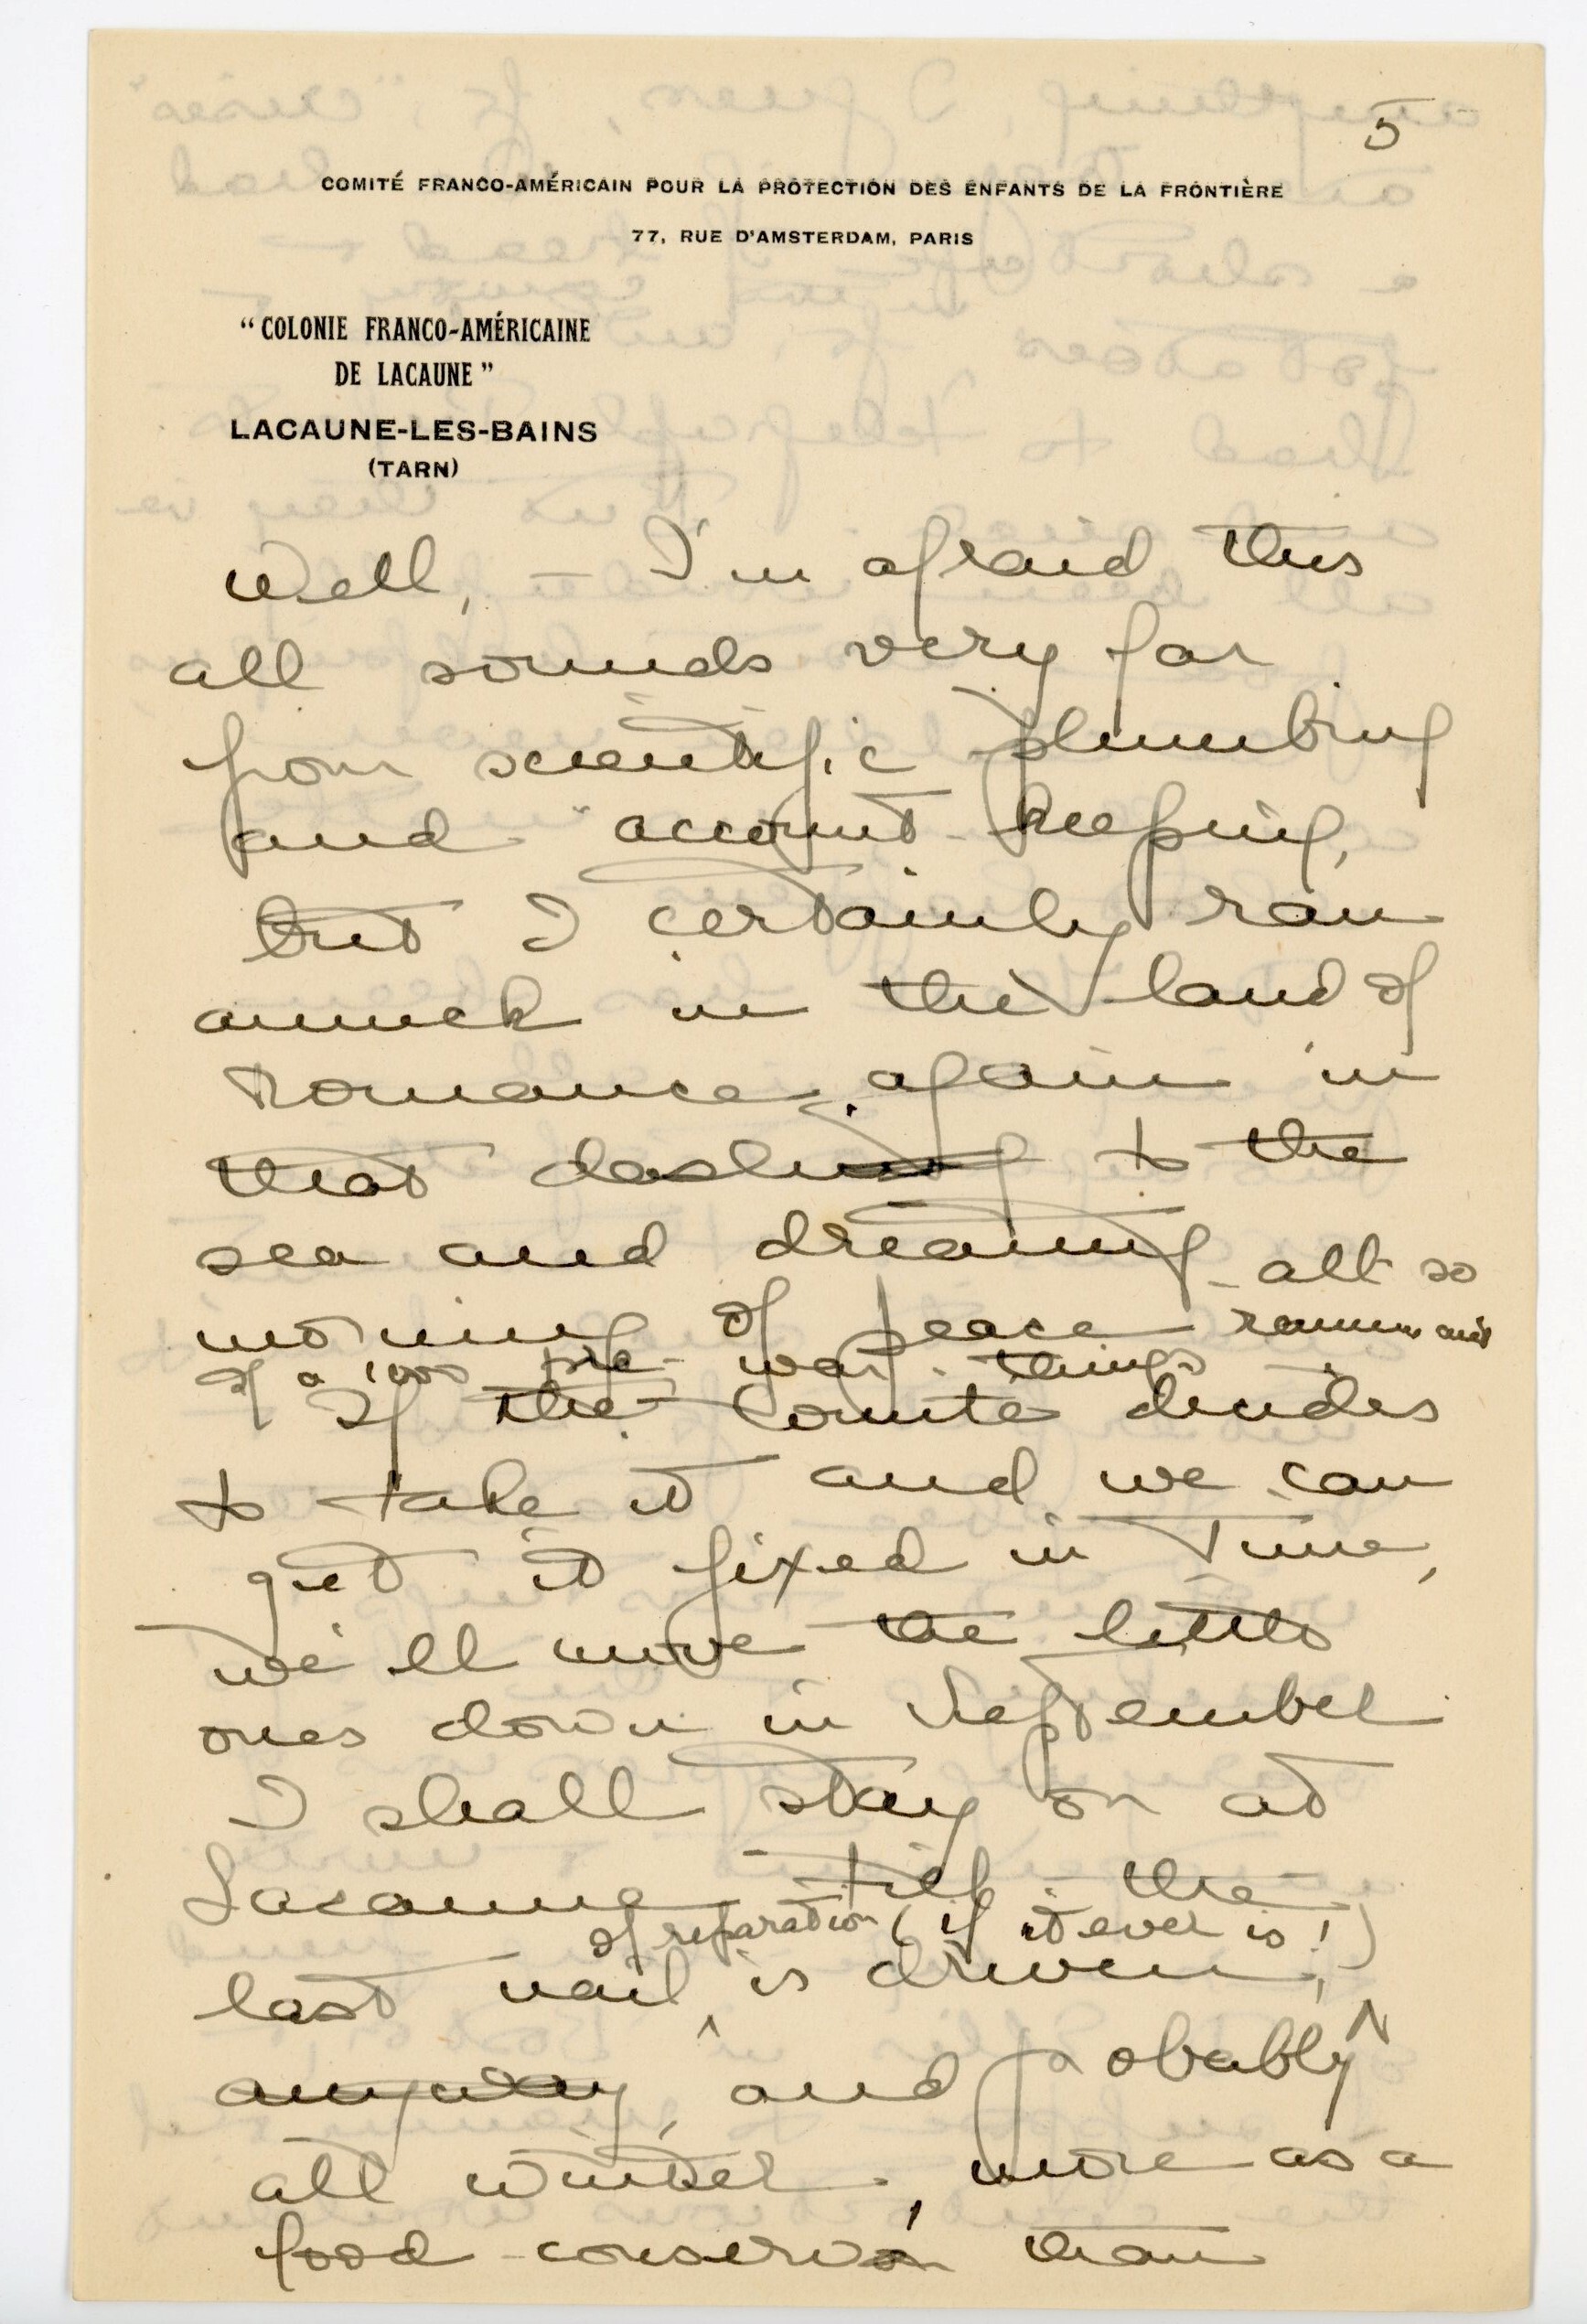 5
COMITÉ FRANCO-AMÉRICAIN POUR LA PROTECTION DES ENFANTS DE LA FRONTIÈRE
77, RUE D'AMSTERDAM, PARIS
"COLONIE FRANCO-AMÉRICAINE
DE LACAUNE"
LACAUNE-LES-BAINS
(TARN)
Well, — I'm afraid this
all sounds very far
from scientific plumbing
and account-keeping,
but I certainly ran
amuck in the land of
Romance again in
that dash to the
sea and dreaming - all so
of peace
of a 1000 pre-war things
If the Comité decides
to take it and we can
get it fixed in time,
we'll move the little
ones down in September
I shall stay on at
Lacaune till the
of reparation (if it ever is!)
last nail is driven,
anyway, and probably
all winter, more as a
food-conservor than